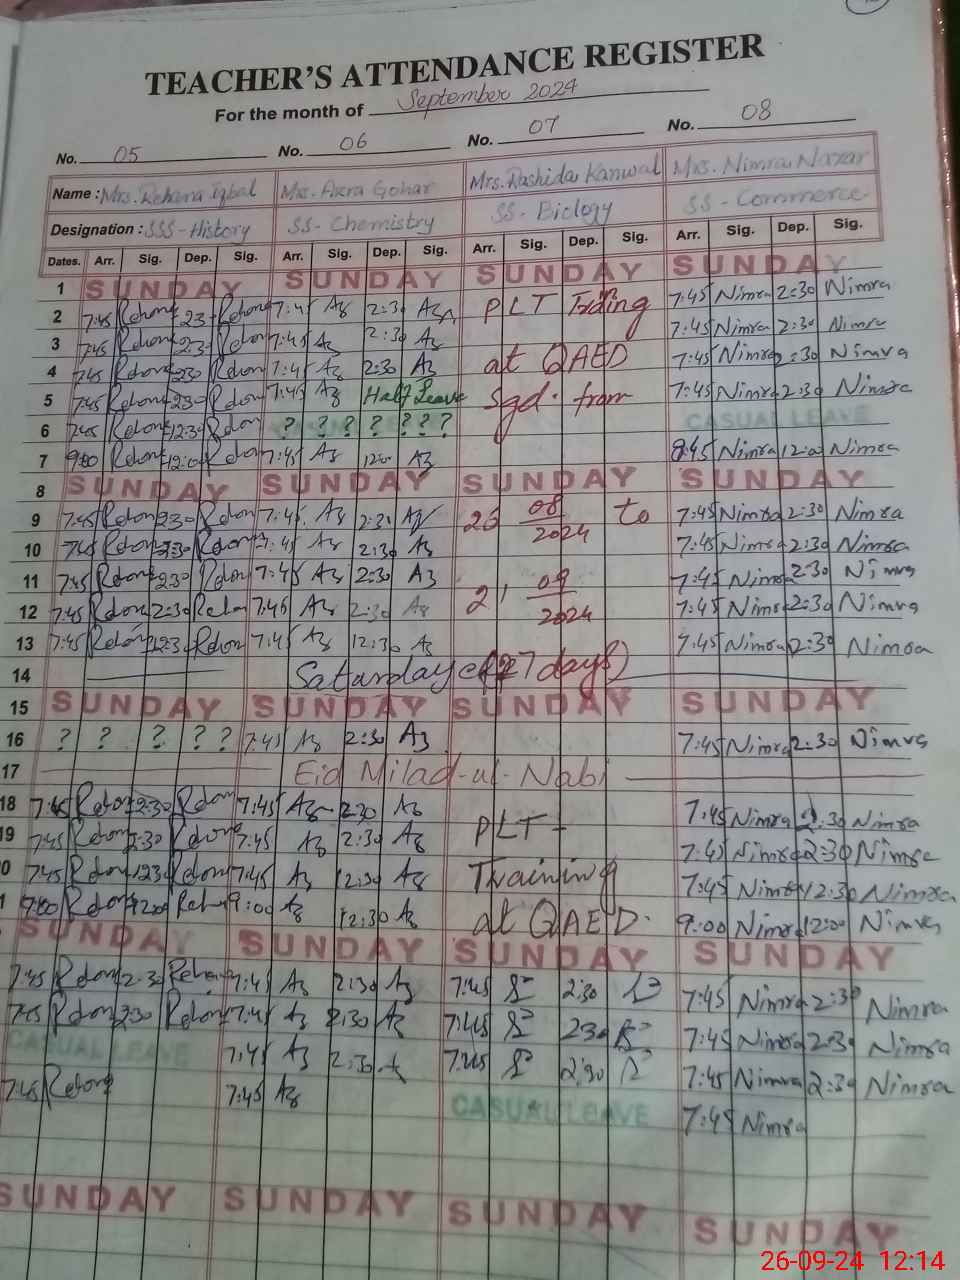 TEACHER'S ATTENDANCE REGISTER
For the month of September 2024
No. 05 No. 06 No. 07 No. 08
Name : Mrs. Rehana Iqbal Mrs. Azra Gohar Mrs. Rashida Kanwal Mrs. Nimra Nazar
Designation : SSS-History SS-Chemistry SS-Biology SS-Commerce
Dates. Arr. Sig. Dep. Sig. Arr. Sig. Dep. Sig. Arr. Sig. Dep. Sig. Arr. Sig. Dep. Sig.
1 SUNDAY SUNDAY SUNDAY SUNDAY
2 7:45 2:30 7:45 Az 2:30 Az PLT 7:45 Nimra 2:30 Nimra
3 7:45 2:30 7:45 Az 2:30 Az 7:45 Nimra 2:30 Nimra
4 7:45 2:30 7:45 Az 2:30 Az at QAED 7:45 Nimra 2:30 Nimra
5 7:45 2:30 7:45 Az Half Leave Sgd. from 7:45 Nimra 2:30 Nimra
6 7:45 12:30 ? ? ? ? ? ? ? CASUAL LEAVE
7 9:00 12:00 7:45 Az 12:00 Az 8:45 Nimra 12:00 Nimra
8 SUNDAY SUNDAY SUNDAY SUNDAY
9 7:45 2:30 7:45 Az 2:30 Az 26 08/2024 to 7:45 Nimra 2:30 Nimra
10 7:45 2:30 7:45 Az 2:30 Az 7:45 Nimra 2:30 Nimra
11 7:45 2:30 7:45 Az 2:30 Az 21 09/2024 7:45 Nimra 2:30 Nimra
12 7:45 2:30 7:45 Az 2:30 Az 7:45 Nimra 2:30 Nimra
13 7:45 12:30 7:45 Az 12:30 Az 7:45 Nimra 2:30 Nimra
14 Saturday 27 days)
15 SUNDAY SUNDAY SUNDAY SUNDAY
16 ? ? ? ? ? 7:45 Az 2:30 Az 7:45 Nimra 2:30 Nimra
17 Eid Milad-ul-Nabi
18 7:45 2:30 7:45 Az 2:30 Az PLT 7:45 Nimra 2:30 Nimra
19 7:45 2:30 7:45 Az 2:30 Az 7:45 Nimra 2:30 Nimra
0 7:45 12:30 7:45 Az 12:30 Az Training 7:45 Nimra 12:30 Nimra
1 9:00 12:00 9:00 Az 12:30 Az at QAED. 9:00 Nimra 12:00 Nimra
SUNDAY SUNDAY SUNDAY SUNDAY
7:45 2:30 7:45 Az 2:30 Az 7:45 2:30 7:45 Nimra 2:30 Nimra
7:45 2:30 7:45 Az 2:30 Az 7:45 2:30 7:45 Nimra 2:30 Nimra
CASUAL LEAVE 7:45 Az 2:30 7:45 2:30 7:45 Nimra 2:30 Nimra
7:45 7:45 Az CASUAL LEAVE 7:45 Nimra
SUNDAY SUNDAY SUNDAY SUNDAY
26-09-24 12:14